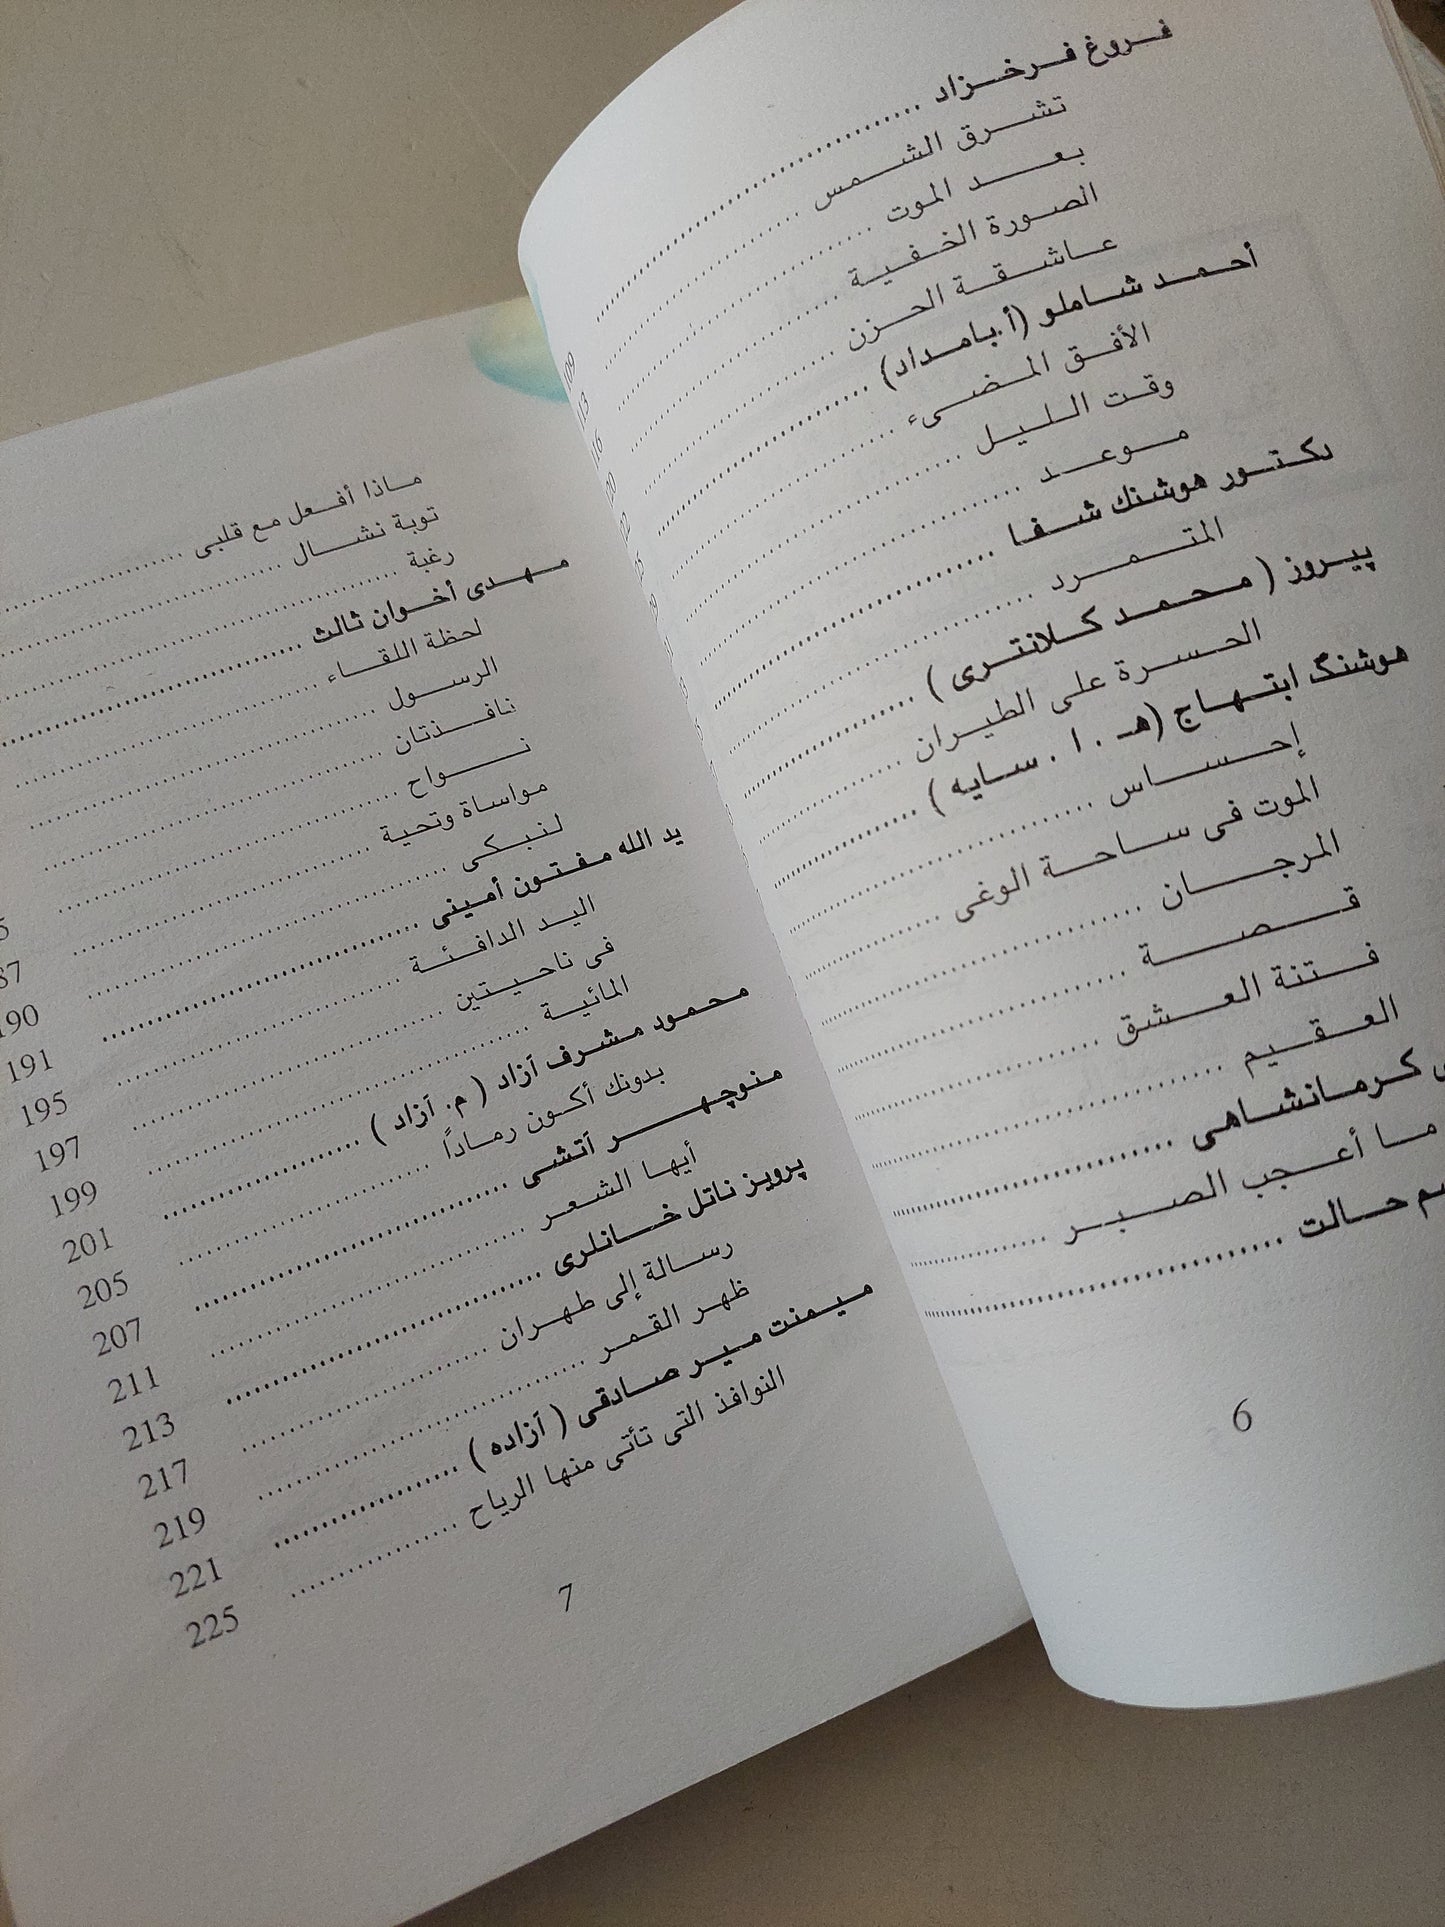 فروغ فرخزاد ........................
تشرق الشمس ........................
بعد الموت ........................
الصورة الخفية ........................
عاشقة الحزن ........................
أحمد شاملو (أ.بامداد) ........................
الأفق المضىء ........................
وقت الليل ........................
موعد ........................
دكتور هوشنك شفا ........................
المتمرد ........................
پيروز ( محمد كلانترى ) ........................
الحسرة على الطيران ........................
هوشنگ ابتهاج (هـ . ا . سايه ) ........................
إحساس ........................
الموت فى ساحة الوغى ........................
المرجان ........................
قصة ........................
فتنة العشق ........................
العقيم ........................
كرمانشاهى ........................
ما أعجب الصبر ........................
حالت ........................
6
ماذا أفعل مع قلبى ........................
توبة نشال ........................
رغبة ........................
مهدى أخوان ثالث ........................
لحظة اللقاء ........................
الرسول ........................
نافذتان ........................
نواح ........................
مواساة وتحية ........................
لنبكى ........................ 190
يد الله مفتون أمينى ........................ 191
اليد الدافئة ........................ 195
فى ناحيتين ........................ 197
المائية ........................ 199
محمود مشرف آزاد ( م. آزاد ) ........................ 201
بدونك أكون رماداً ........................ 205
منوچهر آتشى ........................ 207
أيها الشعر ........................ 211
پرويز ناتل خانلرى ........................ 213
رسالة إلى طهران ........................ 217
ظهر القمر ........................ 219
ميمنت مير صادقى ( آزاده ) ........................ 221
النوافذ التى تأتى منها الرياح ........................ 225
7